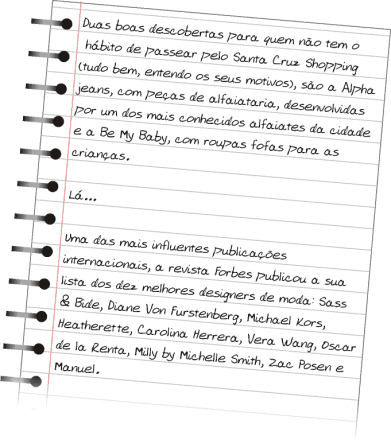 Duas boas descobertas para quem não tem o
hábito de passear pelo Santa Cruz Shopping
(tudo bem, entendo os seus motivos), são a Alpha
jeans, com peças de alfaiataria, desenvolvidas
por um dos mais conhecidos alfaiates da cidade
e a Be My Baby, com roupas fofas para as
crianças.
Lá...
Uma das mais influentes publicações
internacionais, a revista Forbes publicou a sua
lista dos dez melhores designers de moda: Sass
& Bide, Diane Von Furstenberg, Michael Kors,
Heatherette, Carolina Herrera, Vera Wang, Oscar
de la Renta, Milly by Michelle Smith, Zac Posen e
Manuel.